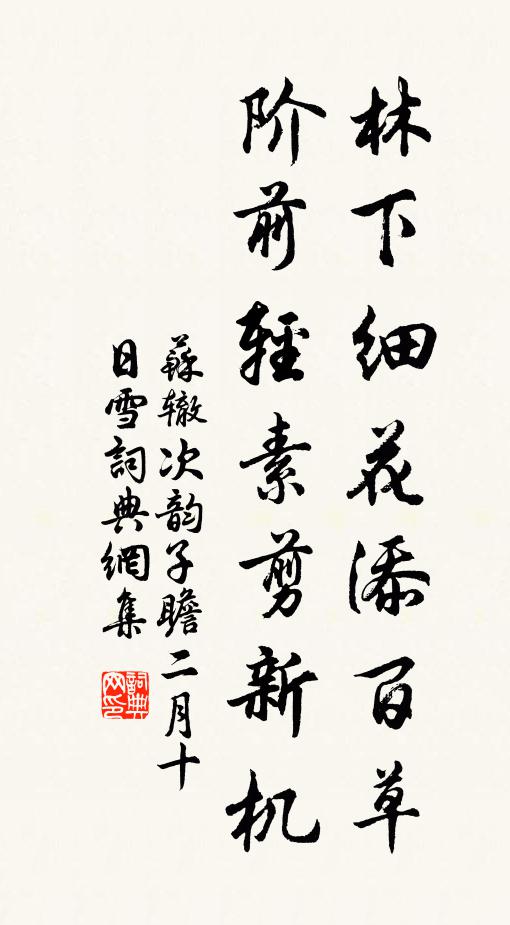 林下细花添百草
阶前輕素剪新机
蘇辙次韵子瞻二月十
日雪詞典網集
詞典
网印